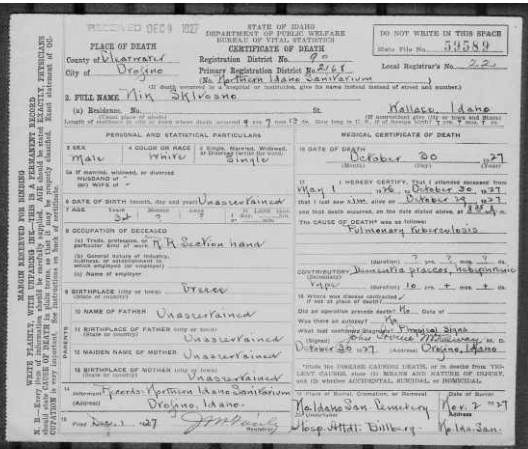 RECEIVED DEC 9 1927
STATE OF IDAHO
DEPARTMENT OF PUBLIC WELFARE
BUREAU OF VITAL STATISTICS
CERTIFICATE OF DEATH
DO NOT WRITE IN THIS SPACE
State File No. 59589
Local Registrar's No. 22
PLACE OF DEATH
County of Clearwater
City of Orofino
Registration District No. 90
Primary Registration District No. 2168
(No. Northern Idaho Sanitarium)
(If death occurred in a hospital or institution, give its name instead of street and number.)
2. FULL NAME Nik
(a) Residence. No. St. Wallace, Idaho
(Usual place of abode) (If nonresident give city or town and State)
PERSONAL AND STATISTICAL PARTICULARS
3 SEX
Male
4 COLOR OR RACE
White
5 Single, Married, Widowed,
Single
5a If married, widowed, or divorced
HUSBAND of
(or) WIFE of
6 DATE OF BIRTH (month, day and year) Unascertained
7 AGE Years
8 OCCUPATION OF DECEASED
(a) Trade, profession, or
particular kind of work R.R. Section hand
(b) General nature of industry,
business, or establishment in
which employed (or employer)
(c) Name of employer
9 BIRTHPLACE (city or town) Greece
(State or country)
PARENTS
10 NAME OF FATHER Unascertained
11 BIRTHPLACE OF FATHER (city or town)
(State or country) Unascertained
12 MAIDEN NAME OF MOTHER
Unascertained
13 BIRTHPLACE OF MOTHER (city or town)
(State or country) Unascertained
14 Informant Records Northern Idaho Sanitarium
(Address) Orofino, Idaho.
15 Filed Dec. 1, 1927
Registrar
MEDICAL CERTIFICATE OF DEATH
16 DATE OF DEATH
October 30 1927
(Month) (Day) (Year)
17 I HEREBY CERTIFY, That I attended deceased from
May 1 1926, October 30, 1927
that I last saw him alive on October 29, 1927
and that death occurred, on the date stated above, at
The CAUSE OF DEATH* was as follows:
Pulmonary tuberculosis
CONTRIBUTORY Dementia praecox, hebephrenic
(Secondary)
type (duration) 10 yrs.
18 Where was disease contracted
if not at place of death?
Did an operation precede death? No Date of
Was there an autopsy? No
What test confirmed diagnosis? Physical signs
(Signed) M. D.
October 30 1927. (Address) Orofino, Idaho
*State the DISEASE CAUSING DEATH, or in deaths from VIOLENT CAUSES, state (1) MEANS AND NATURE OF INJURY, and (2) whether ACCIDENTAL, SUICIDAL or HOMICIDAL.
19 Place of Burial, Cremation, or Removal Date of Burial
No.Idaho San. Cemetery Nov. 2 1927
20 Undertaker Address
Hosp. Attdt. Billberg No.Ida.San.
MARGIN RESERVED FOR BINDING
WRITE PLAINLY, WITH UNFADING INK—THIS IS A PERMANENT RECORD
N. B.—Every item of information should be carefully supplied. AGE should be stated EXACTLY. PHYSICIANS
should state CAUSE OF DEATH in plain terms, so that it may be properly classified. Exact statement of OC-
CUPATION is very important. See instructions on back of certificate.